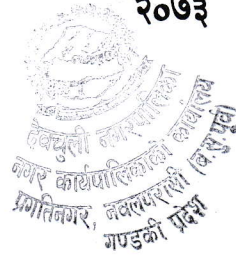 २०७३
देवचुली नगरपालिका
नगर कार्यपालिकाको कार्यालय
प्रगतिनगर, नवलपरासी (ब.सु.पूर्व)
गण्डकी प्रदेश